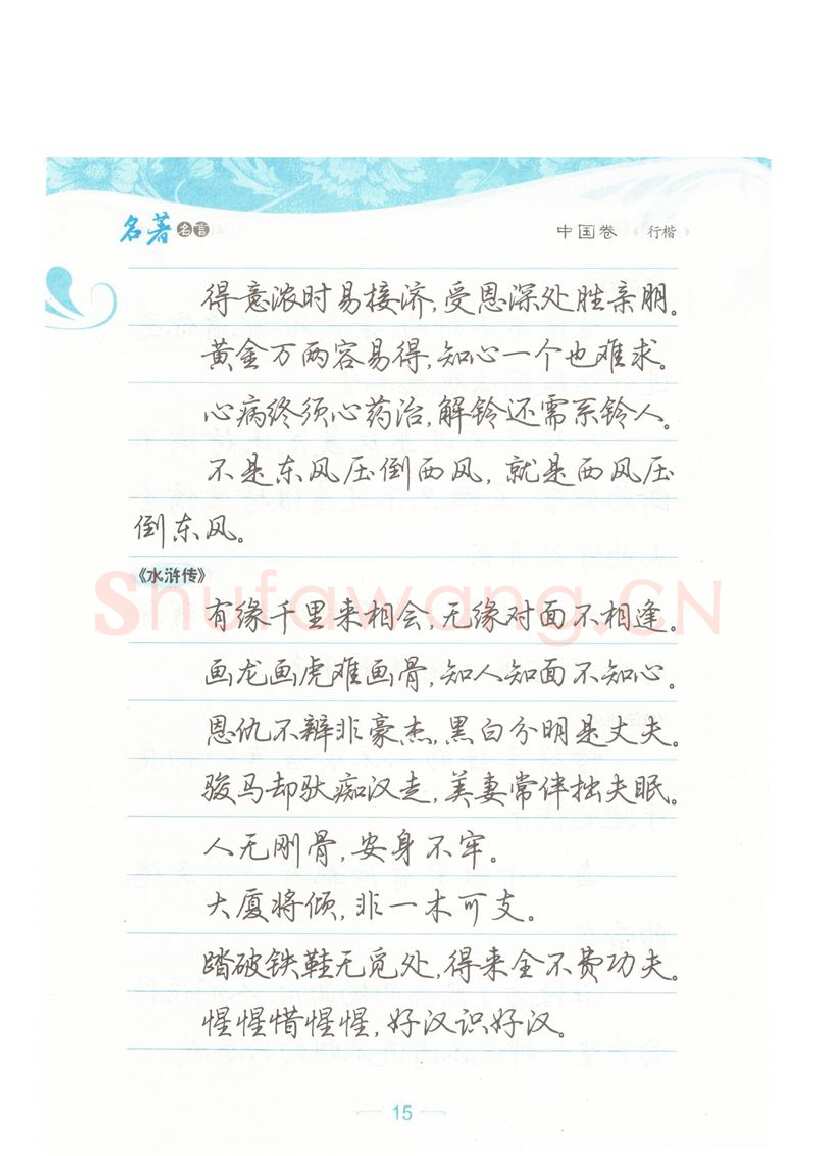 名著名言
中国卷 行楷
得意浓时易接济,受恩深处胜亲朋。
黄金万两容易得,知心一个也难求。
心病终须心药治,解铃还需系铃人。
不是东风压倒西风,就是西风压
倒东风。
《水浒传》
Shufawang.CN
有缘千里来相会,无缘对面不相逢。
画龙画虎难画骨,知人知面不知心。
恩仇不辨非豪杰,黑白分明是丈夫。
骏马却驮痴汉走,美妻常伴拙夫眠。
人无刚骨,安身不牢。
大厦将倾,非一木可支。
踏破铁鞋无觅处,得来全不费功夫。
惺惺惜惺惺,好汉识好汉。
15